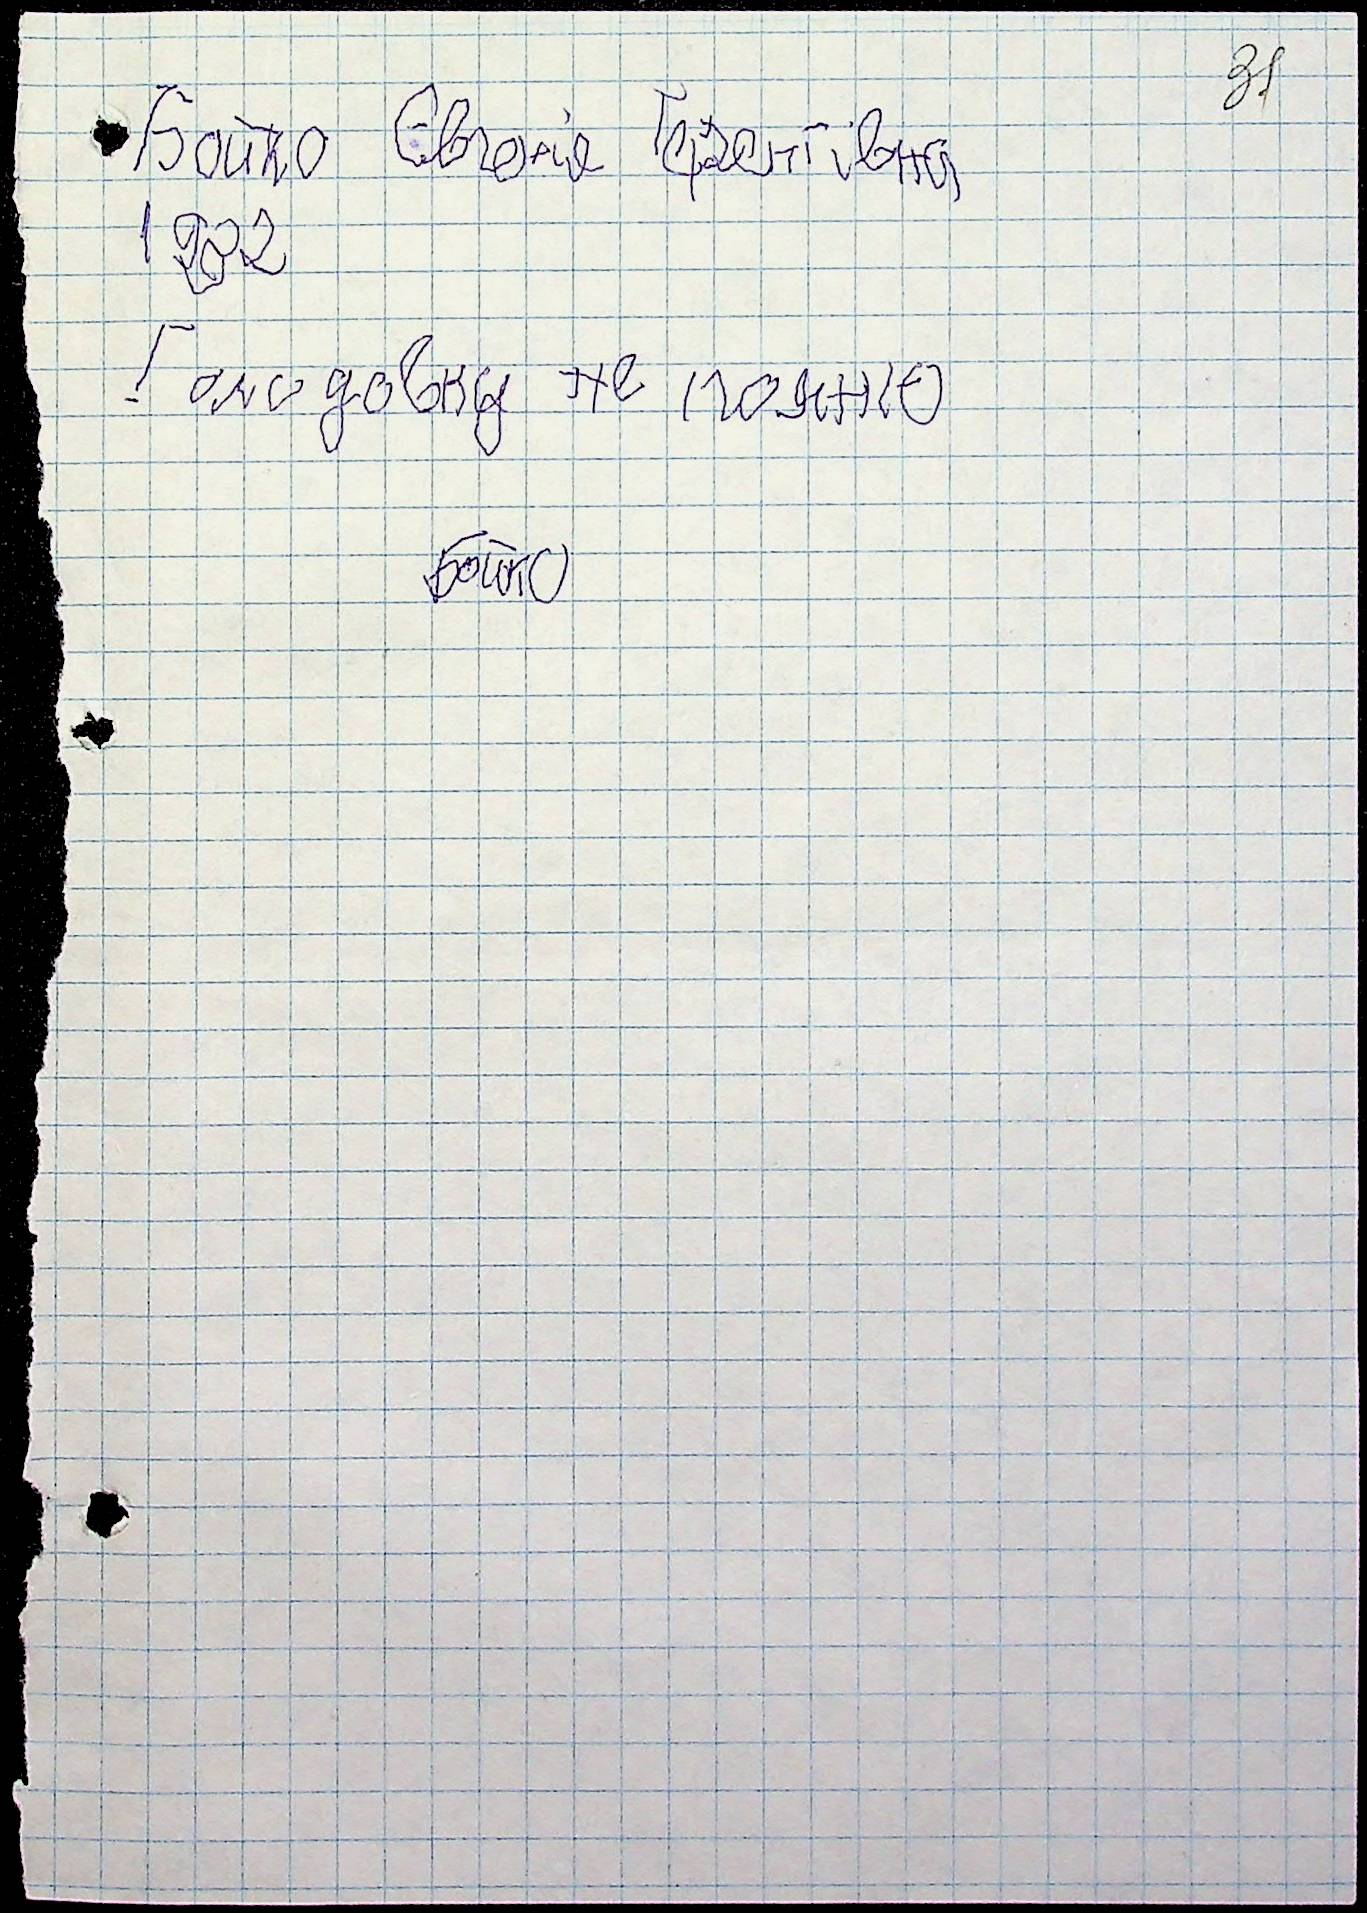 31
Бойко Євгенія
1932
Голодовку не помню
Бойко